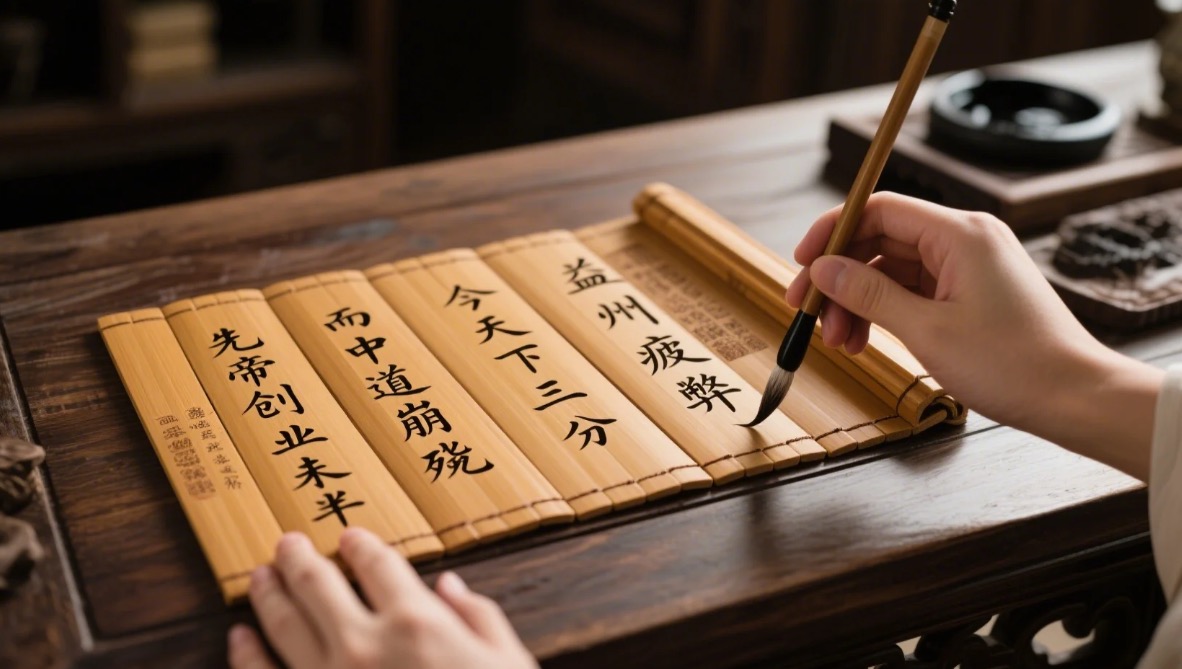 先帝创业未半
而中道崩
今天下三分
益州疲弊